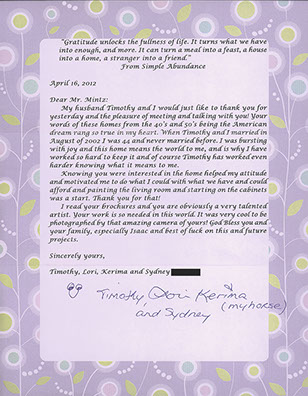 "Gratitude unlocks the fullness of life. It turns what we have
into enough, and more. It can turn a meal into a feast, a house
into a home, a stranger into a friend."
From Simple Abundance
April 16, 2012
Dear Mr. Mintz:
My husband Timothy and I would just like to thank you for
yesterday and the pleasure of meeting and talking with you! Your
words of these homes from the 40's and 50's being the American
dream rang so true in my heart. When Timothy and I married in
August of 2002 I was 44 and never married before. I was bursting
with joy and this home means the world to me, and is why I have
worked so hard to keep it and of course Timothy has worked even
harder knowing what it means to me.
Knowing you were interested in the home helped my attitude
and motivated me to do what I could with what we have and could
afford and painting the living room and starting on the cabinets
was a start. Thank you for that!
I read your brochures and you are obviously a very talented
artist. Your work is so needed in this world. It was very cool to be
photographed by that amazing camera of yours! God Bless you and
your family, especially Isaac and best of fuck on this and future
projects.
Sincerely yours,
Timothy, Lori, Kerima and Sydney
Timothy, Lori Kerima
(my horse)
and Sydney